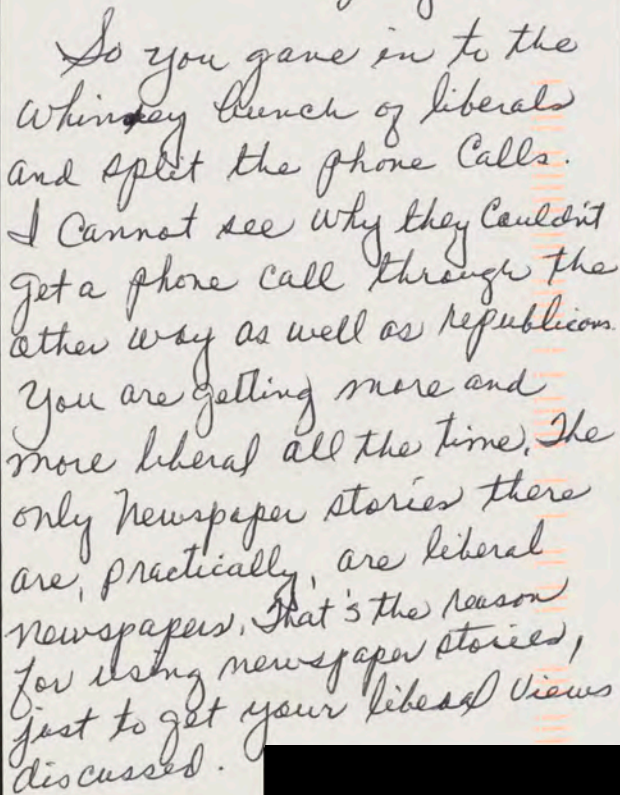 So you gave in to the
whinsey bunch of liberals
and split the phone Calls.
I Cannot see why they Couldn't
get a phone call through the
other way as well as republicans.
You are getting more and
more liberal all the time. The
only Newspaper stories there
are, practically, are liberal
newspapers. That's the reason
for using newspaper stories,
just to get your liberal views
discussed.